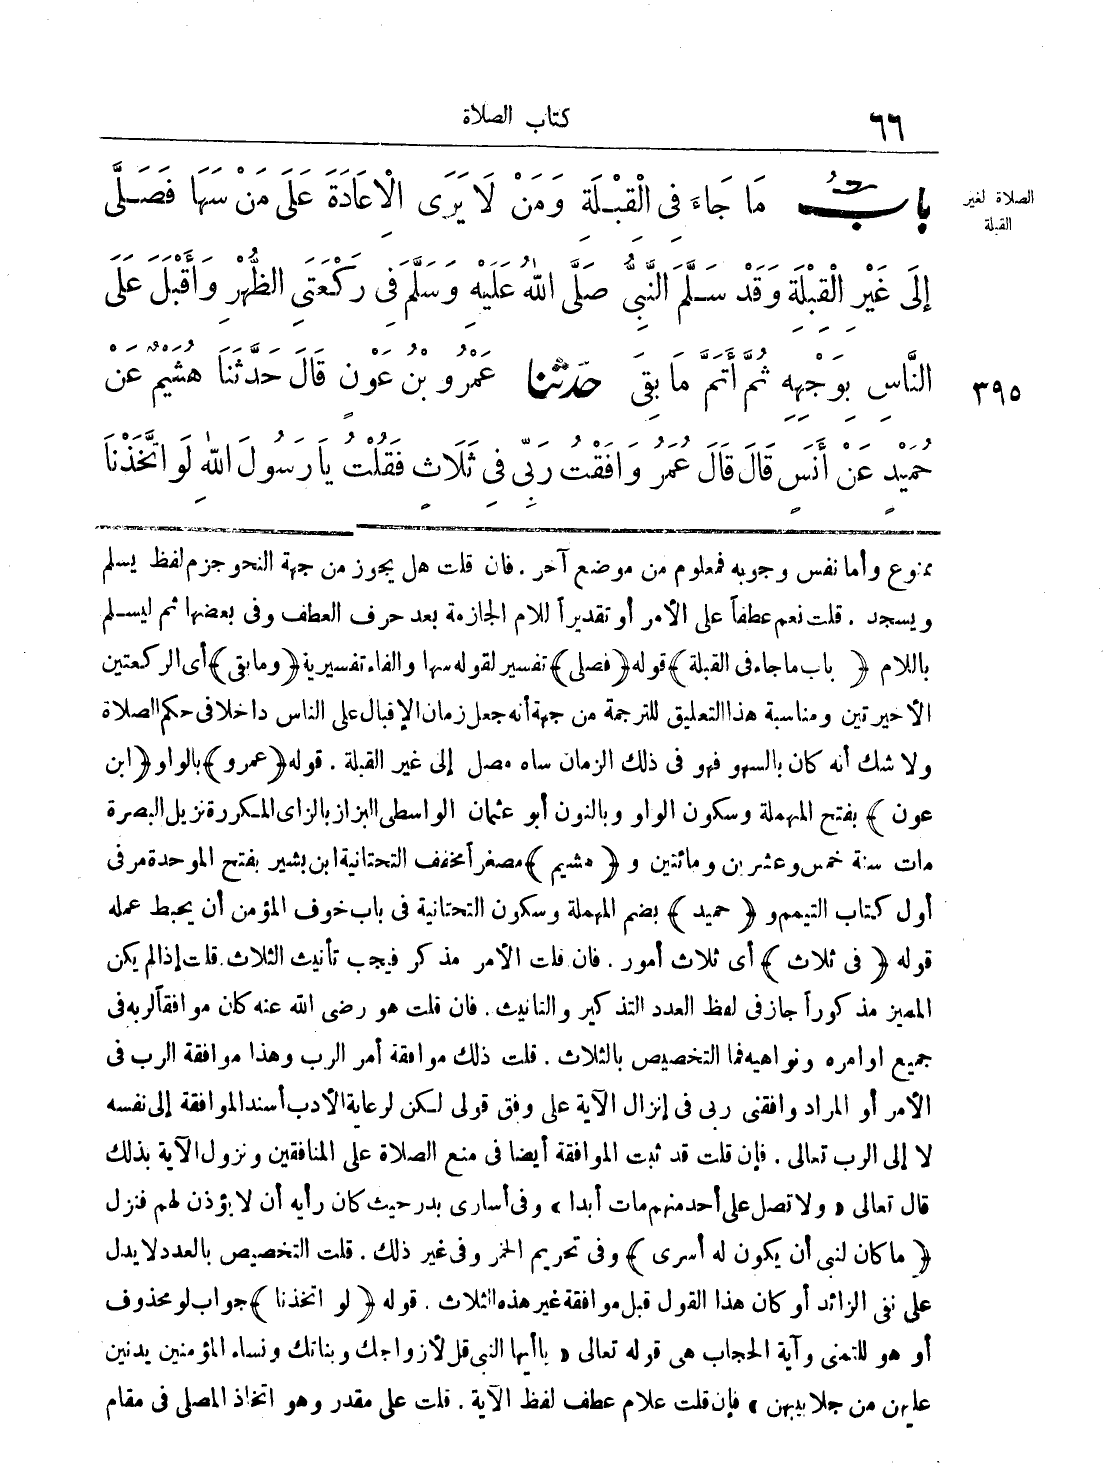 ٦٦
كتاب الصلاة
الصلاة لغير
القبلة
بابُ مَا جَاءَ فِى الْقِبْلَةِ وَمَنْ لَا يَرَى الْاِعَادَةَ عَلَى مَنْ سَهَا فَصَلَّى
إِلَى غَيْرِ الْقِبْلَةِ وَقَدْ سَلَّمَ النَّبِىُّ صَلَّى اللهُ عَلَيْهِ وَسَلَّمَ فِى رَكْعَتَىِ الظُّهْرِ وَأَقْبَلَ عَلَى
٣٩٥
النَّاسِ بِوَجْهِهِ ثُمَّ أَتَمَّ مَا بَقِىَ حَدّثنا عَمْرُو بْنُ عَوْنٍ قَالَ حَدَّثَنَا هُشَيْمٌ عَنْ
حُمَيْدٍ عَنْ أَنَسٍ قَالَ قَالَ عُمَرُ وَافَقْتُ رَبِّى فِى ثَلَاثٍ فَقُلْتُ يَا رَسُولَ اللهِ لَوِ اتَّخَذْنَا
ممنوع وأما نفس وجوبه فمعلوم من موضع آخر . فان قلت هل يجوز من جهة النحو جزم لفظ يسلم
ويسجد . قلت نعم عطفاً على الأمر أو تقديراً للام الجازمة بعد حرف العطف وفى بعضها ثم ليسلم
باللام ﴿ باب ماجاء فى القبلة ﴾ قوله ﴿ فصلى ﴾ تفسير لقوله سها والفاء تفسيرية ﴿ ومابقى ﴾ أى الركعتين
الأخيرتين ومناسبة هذا التعليق للترجمة من جهة أنه جعل زمان الإقبال على الناس داخلا فى حكم الصلاة
ولا شك أنه كان بالسهو فهو فى ذلك الزمان ساه مصل إلى غير القبلة . قوله ﴿ عمرو ﴾ بالواو ﴿ ابن
عون ﴾ بفتح المهملة وسكون الواو وبالنون أبو عثمان الواسطى البزاز بالزاى المكررة نزيل البصرة
مات سنة خمس وعشرين ومائتين و ﴿ هشيم ﴾ مصغراً مخفف التحتانية ابن بشير بفتح الموحدة مر فى
أول كتاب التيمم و ﴿ حميد ﴾ بضم المهملة وسكون التحتانية فى باب خوف المؤمن أن يحبط عمله
قوله ﴿ فى ثلاث ﴾ أى ثلاث أمور . فان قلت الأمر مذكر فيجب تأنيث الثلاث . قلت إذا لم يكن
المميز مذكوراً جاز فى لفظ العدد التذكير والتانيث . فان قلت هو رضى الله عنه كان موافقاً لربه فى
جميع اوامره ونواهيه فما التخصيص بالثلاث . قلت ذلك موافقة أمر الرب وهذا موافقة الرب فى
الأمر أو المراد وافقنى ربى فى إنزال الآية على وفق قولى لكن لرعاية الأدب أسند الموافقة إلى نفسه
لا إلى الرب تعالى . فإن قلت قد ثبت الموافقة أيضا فى منع الصلاة على المنافقين ونزول الآية بذلك
قال تعالى « ولا تصل على أحد منهم مات أبدا » وفى أسارى بدر حيث كان رأيه أن لا يؤذن لهم فنزل
﴿ ما كان لنبى أن يكون له أسرى ﴾ وفى تحريم الخمر وفى غير ذلك . قلت التخصيص بالعدد لا يدل
على نفى الزائد أو كان هذا القول قبل موافقة غير هذه الثلاث . قوله ﴿ لو اتخذنا ﴾ جواب لو محذوف
أو هو للتمنى وآية الحجاب هى قوله تعالى « ياأيها النبى قل لأزواجك وبناتك ونساء المؤمنين يدنين
عليهن من جلابيبهن » فإن قلت علام عطف لفظ الآية . قلت على مقدر وهو اتخاذ المصلى فى مقام